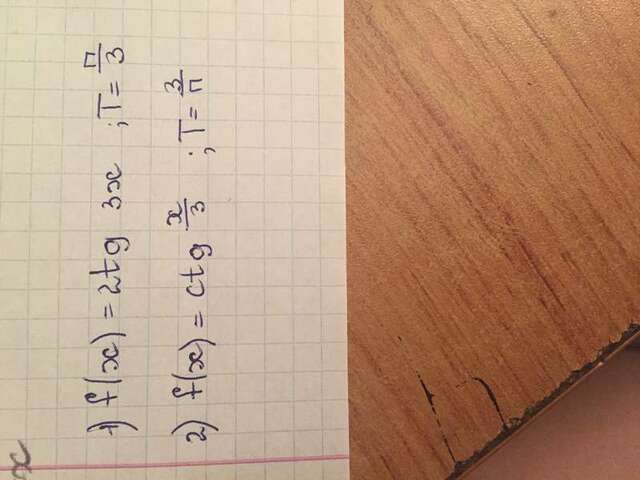 x
1) f(x) = 2tg 3x ; T = п/3
2) f(x) = ctg x/3 ; T = 3/п